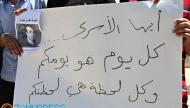 أيها الأسرى....
كل يوم هو يومكم
وكل لحظة هي لحظتكم